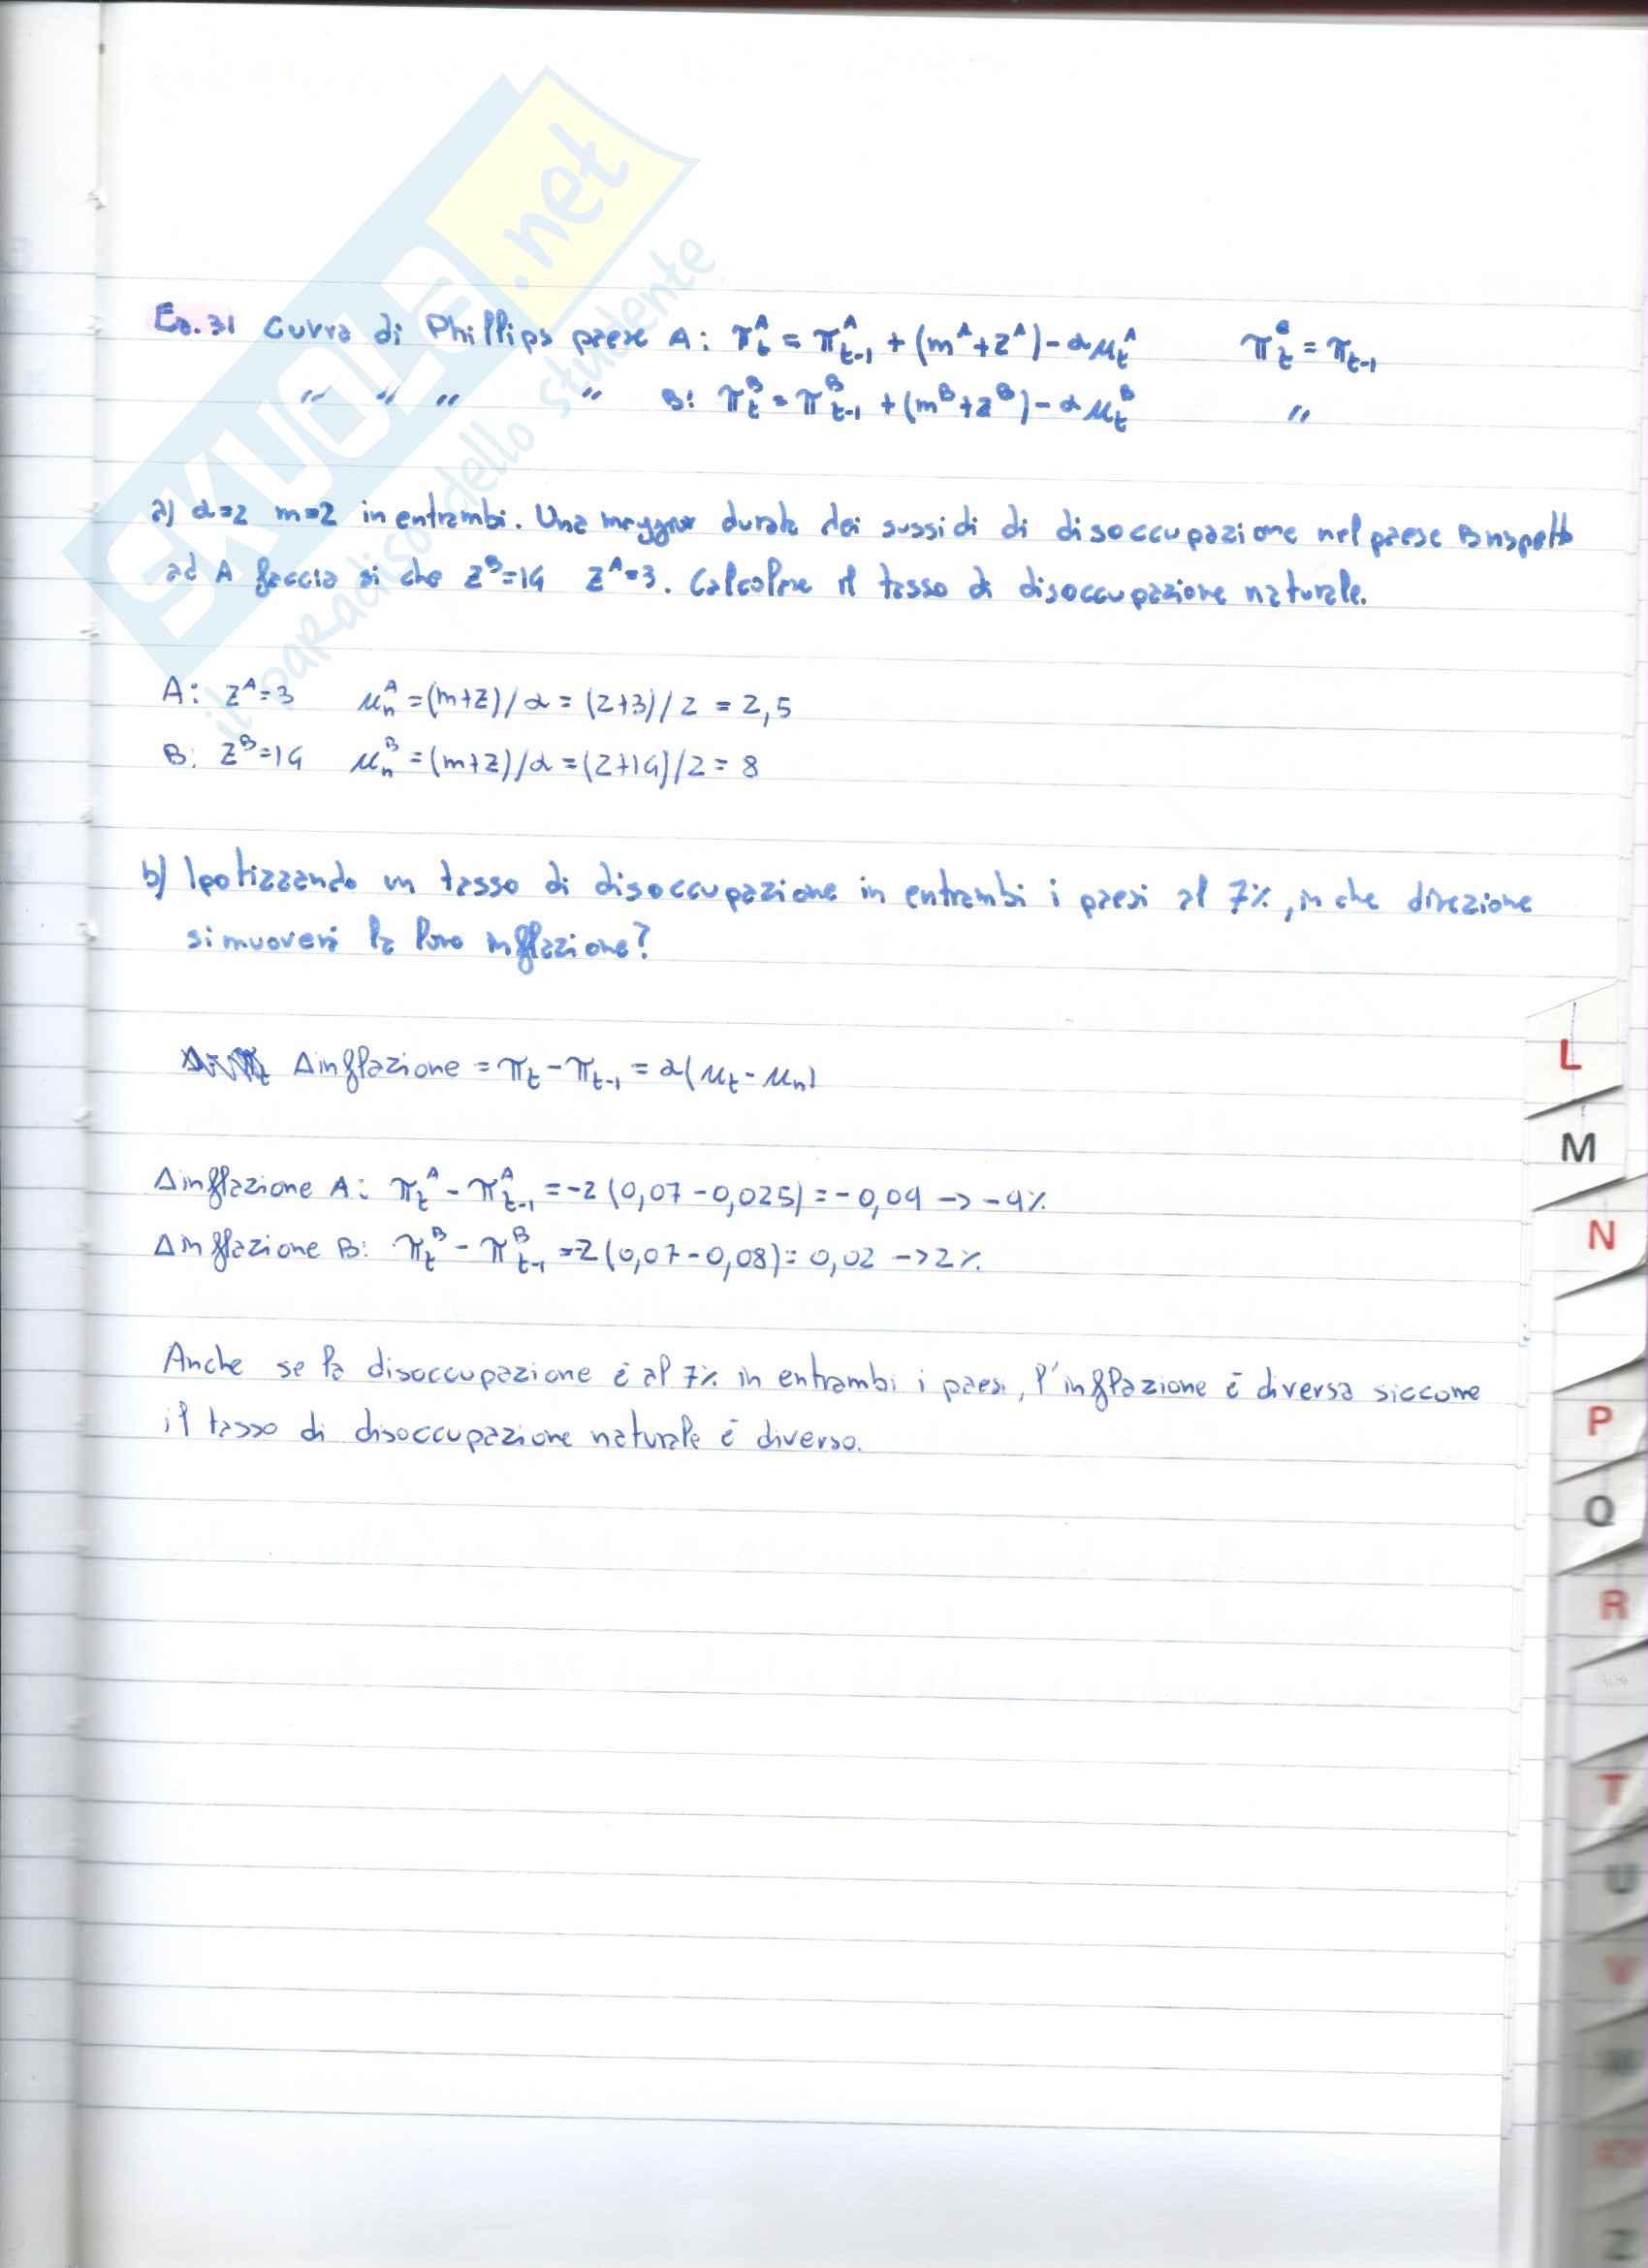 SKUOLA.net
il paradiso dello studente
Es. 31 Curva di Phillips paese A: π_t^A = π_{t-1}^A + (m^A+z^A) - α μ_t^A π_t^e = π_{t-1}
" " " " B: π_t^B = π_{t-1}^B + (m^B+z^B) - α μ_t^B "
a) α=2 m=2 in entrambi. Una maggior durata dei sussidi di disoccupazione nel paese B rispetto
ad A faccia si che z^B=14 z^A=3. Calcolare il tasso di disoccupazione naturale.
A: z^A=3 μ_n^A = (m+z)/α = (2+3)/2 = 2,5
B: z^B=14 μ_n^B = (m+z)/α = (2+14)/2 = 8
b) Ipotizzando un tasso di disoccupazione in entrambi i paesi al 7%, in che direzione
si muoverà la loro inflazione?
Δinflazione = π_t - π_{t-1} = α(μ_t - μ_n)
Δinflazione A: π_t^A - π_{t-1}^A = -2 (0,07 - 0,025) = -0,09 → -9%
Δinflazione B: π_t^B - π_{t-1}^B = -2 (0,07 - 0,08) = 0,02 → 2%
Anche se la disoccupazione è al 7% in entrambi i paesi, l'inflazione è diversa siccome
il tasso di disoccupazione naturale è diverso.
L
M
N
P
Q
R
T
U
V
Z